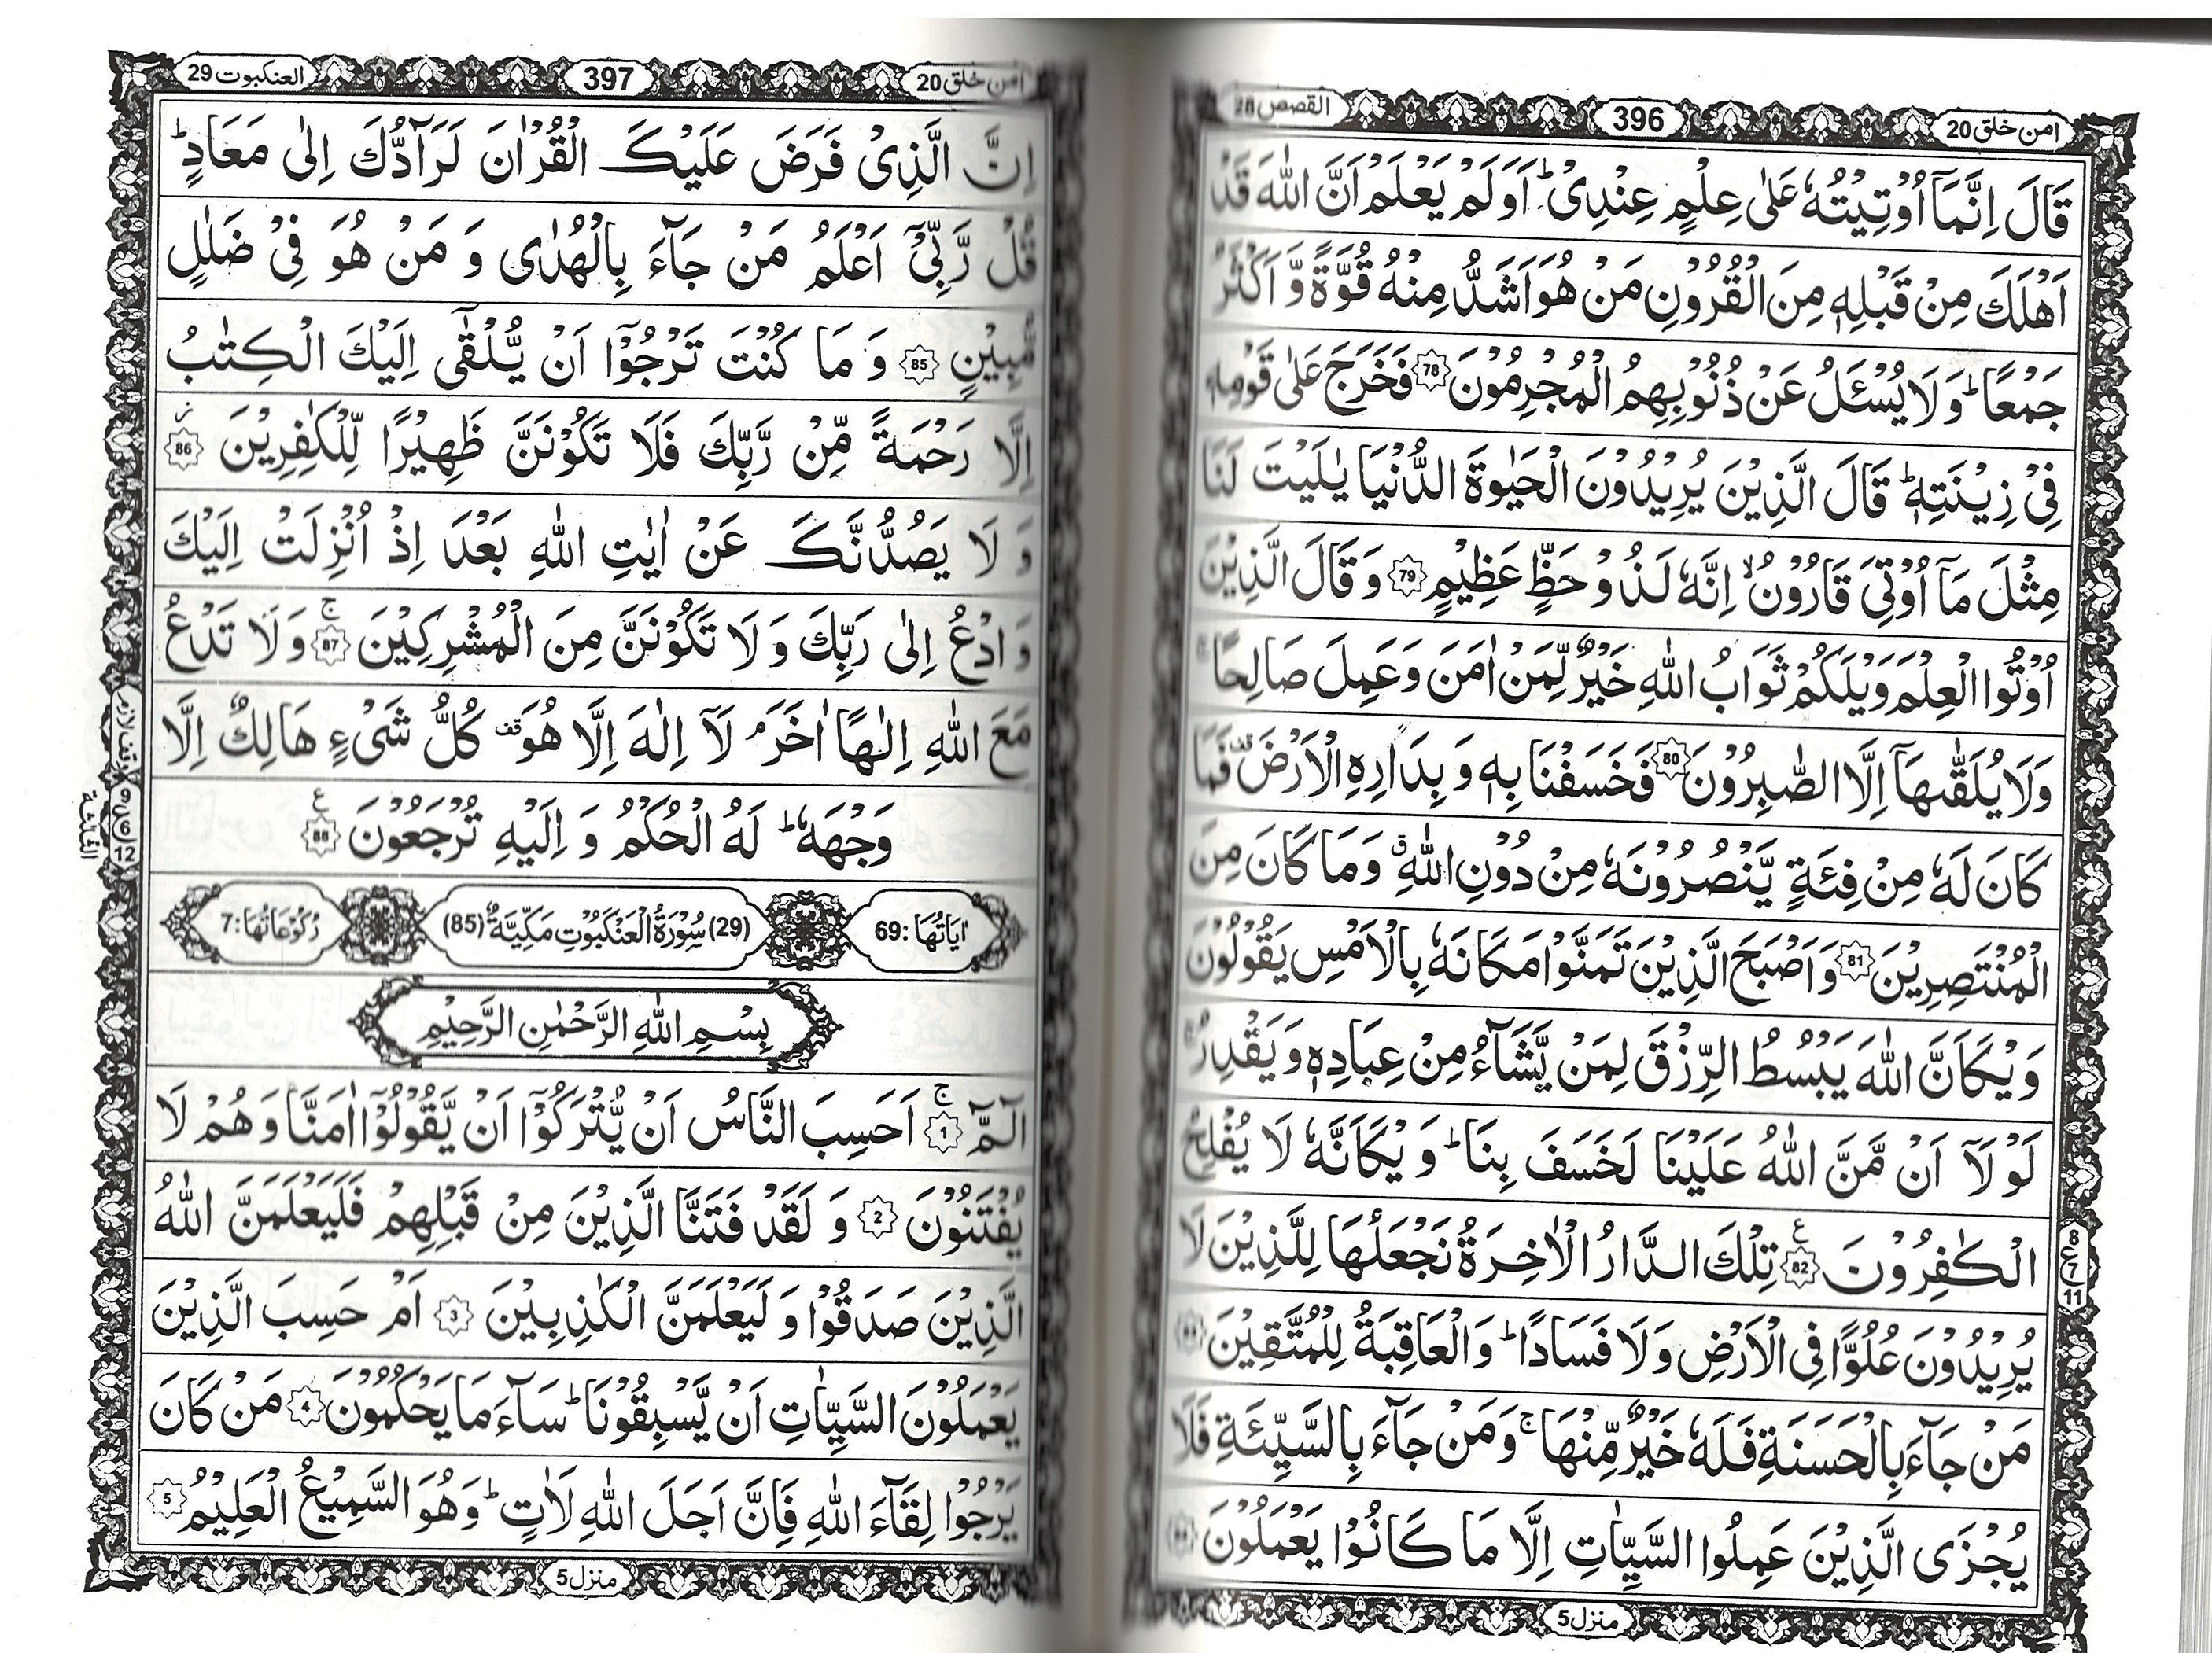 القصص 28
396
امن خلق 20
قَالَ اِنَّمَاۤ اُوْتِیْتُهٗ عَلٰی عِلْمٍ عِنْدِیْ ؕ اَوَلَمْ یَعْلَمْ اَنَّ اللّٰهَ قَدْ
اَهْلَكَ مِنْ قَبْلِهٖ مِنَ الْقُرُوْنِ مَنْ هُوَ اَشَدُّ مِنْهُ قُوَّةً وَّ اَكْثَرُ
جَمْعًا ؕ وَ لَا یُسْـَٔلُ عَنْ ذُنُوْبِهِمُ الْمُجْرِمُوْنَ 78 فَخَرَجَ عَلٰی قَوْمِهٖ
فِیْ زِیْنَتِهٖ ؕ قَالَ الَّذِیْنَ یُرِیْدُوْنَ الْحَیٰوةَ الدُّنْیَا یٰلَیْتَ لَنَا
مِثْلَ مَاۤ اُوْتِیَ قَارُوْنُ ۙ اِنَّهٗ لَذُوْ حَظٍّ عَظِیْمٍ 79 وَ قَالَ الَّذِیْنَ
اُوْتُوا الْعِلْمَ وَیْلَكُمْ ثَوَابُ اللّٰهِ خَیْرٌ لِّمَنْ اٰمَنَ وَ عَمِلَ صَالِحًا ۚ
وَ لَا یُلَقّٰىهَاۤ اِلَّا الصّٰبِرُوْنَ 80 فَخَسَفْنَا بِهٖ وَ بِدَارِهِ الْاَرْضَ ۫ فَمَا
كَانَ لَهٗ مِنْ فِئَةٍ یَّنْصُرُوْنَهٗ مِنْ دُوْنِ اللّٰهِ ۗ وَ مَا كَانَ مِنَ
الْمُنْتَصِرِیْنَ 81 وَ اَصْبَحَ الَّذِیْنَ تَمَنَّوْا مَكَانَهٗ بِالْاَمْسِ یَقُوْلُوْنَ
وَیْكَاَنَّ اللّٰهَ یَبْسُطُ الرِّزْقَ لِمَنْ یَّشَآءُ مِنْ عِبَادِهٖ وَ یَقْدِرُ ۚ
لَوْ لَاۤ اَنْ مَّنَّ اللّٰهُ عَلَیْنَا لَخَسَفَ بِنَا ؕ وَیْكَاَنَّهٗ لَا یُفْلِحُ
الْكٰفِرُوْنَ 82 ع تِلْكَ الدَّارُ الْاٰخِرَةُ نَجْعَلُهَا لِلَّذِیْنَ لَا
یُرِیْدُوْنَ عُلُوًّا فِی الْاَرْضِ وَ لَا فَسَادًا ؕ وَ الْعَاقِبَةُ لِلْمُتَّقِیْنَ 83
مَنْ جَآءَ بِالْحَسَنَةِ فَلَهٗ خَیْرٌ مِّنْهَا ۚ وَ مَنْ جَآءَ بِالسَّیِّئَةِ فَلَا
یُجْزَی الَّذِیْنَ عَمِلُوا السَّیِّاٰتِ اِلَّا مَا كَانُوْا یَعْمَلُوْنَ 84
8
ع 7
11
منزل 5
العنكبوت 29
397
امن خلق 20
اِنَّ الَّذِیْ فَرَضَ عَلَیْكَ الْقُرْاٰنَ لَرَآدُّكَ اِلٰی مَعَادٍ ؕ
قُلْ رَّبِّیْۤ اَعْلَمُ مَنْ جَآءَ بِالْهُدٰی وَ مَنْ هُوَ فِیْ ضَلٰلٍ
مُّبِیْنٍ 85 وَ مَا كُنْتَ تَرْجُوْۤا اَنْ یُّلْقٰۤی اِلَیْكَ الْكِتٰبُ
اِلَّا رَحْمَةً مِّنْ رَّبِّكَ فَلَا تَكُوْنَنَّ ظَهِیْرًا لِّلْكٰفِرِیْنَ ز 86
وَ لَا یَصُدُّنَّكَ عَنْ اٰیٰتِ اللّٰهِ بَعْدَ اِذْ اُنْزِلَتْ اِلَیْكَ
وَ ادْعُ اِلٰی رَبِّكَ وَ لَا تَكُوْنَنَّ مِنَ الْمُشْرِكِیْنَ ۚ 87 وَ لَا تَدْعُ
مَعَ اللّٰهِ اِلٰهًا اٰخَرَ ۘ لَاۤ اِلٰهَ اِلَّا هُوَ ۫ كُلُّ شَیْءٍ هَالِكٌ اِلَّا
وَجْهَهٗ ؕ لَهُ الْحُكْمُ وَ اِلَیْهِ تُرْجَعُوْنَ 88 ع
اٰیَاتُهَا: 69
(29) سُوْرَةُ الْعَنْكَبُوْتِ مَكِّیَّةٌ (85)
رُكُوْعَاتُهَا: 7
بِسْمِ اللّٰهِ الرَّحْمٰنِ الرَّحِیْمِ
الٓمّٓ ۚ 1 اَحَسِبَ النَّاسُ اَنْ یُّتْرَكُوْۤا اَنْ یَّقُوْلُوْۤا اٰمَنَّا وَ هُمْ لَا
یُفْتَنُوْنَ 2 وَ لَقَدْ فَتَنَّا الَّذِیْنَ مِنْ قَبْلِهِمْ فَلَیَعْلَمَنَّ اللّٰهُ
الَّذِیْنَ صَدَقُوْا وَ لَیَعْلَمَنَّ الْكٰذِبِیْنَ 3 اَمْ حَسِبَ الَّذِیْنَ
یَعْمَلُوْنَ السَّیِّاٰتِ اَنْ یَّسْبِقُوْنَا ؕ سَآءَ مَا یَحْكُمُوْنَ 4 مَنْ كَانَ
یَرْجُوْا لِقَآءَ اللّٰهِ فَاِنَّ اَجَلَ اللّٰهِ لَاٰتٍ ؕ وَ هُوَ السَّمِیْعُ الْعَلِیْمُ 5
وقف لازم
12
منزل 5